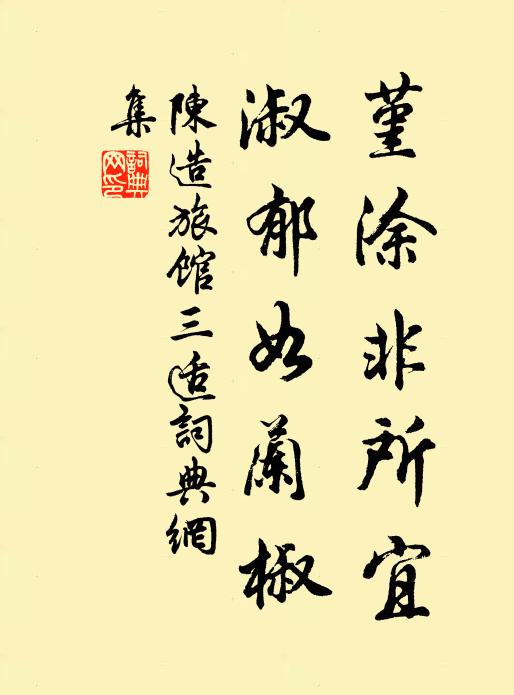 堇涂非所宜
淑郁如蘭椒
陳造旅館三适詞典網
集
詞典網印